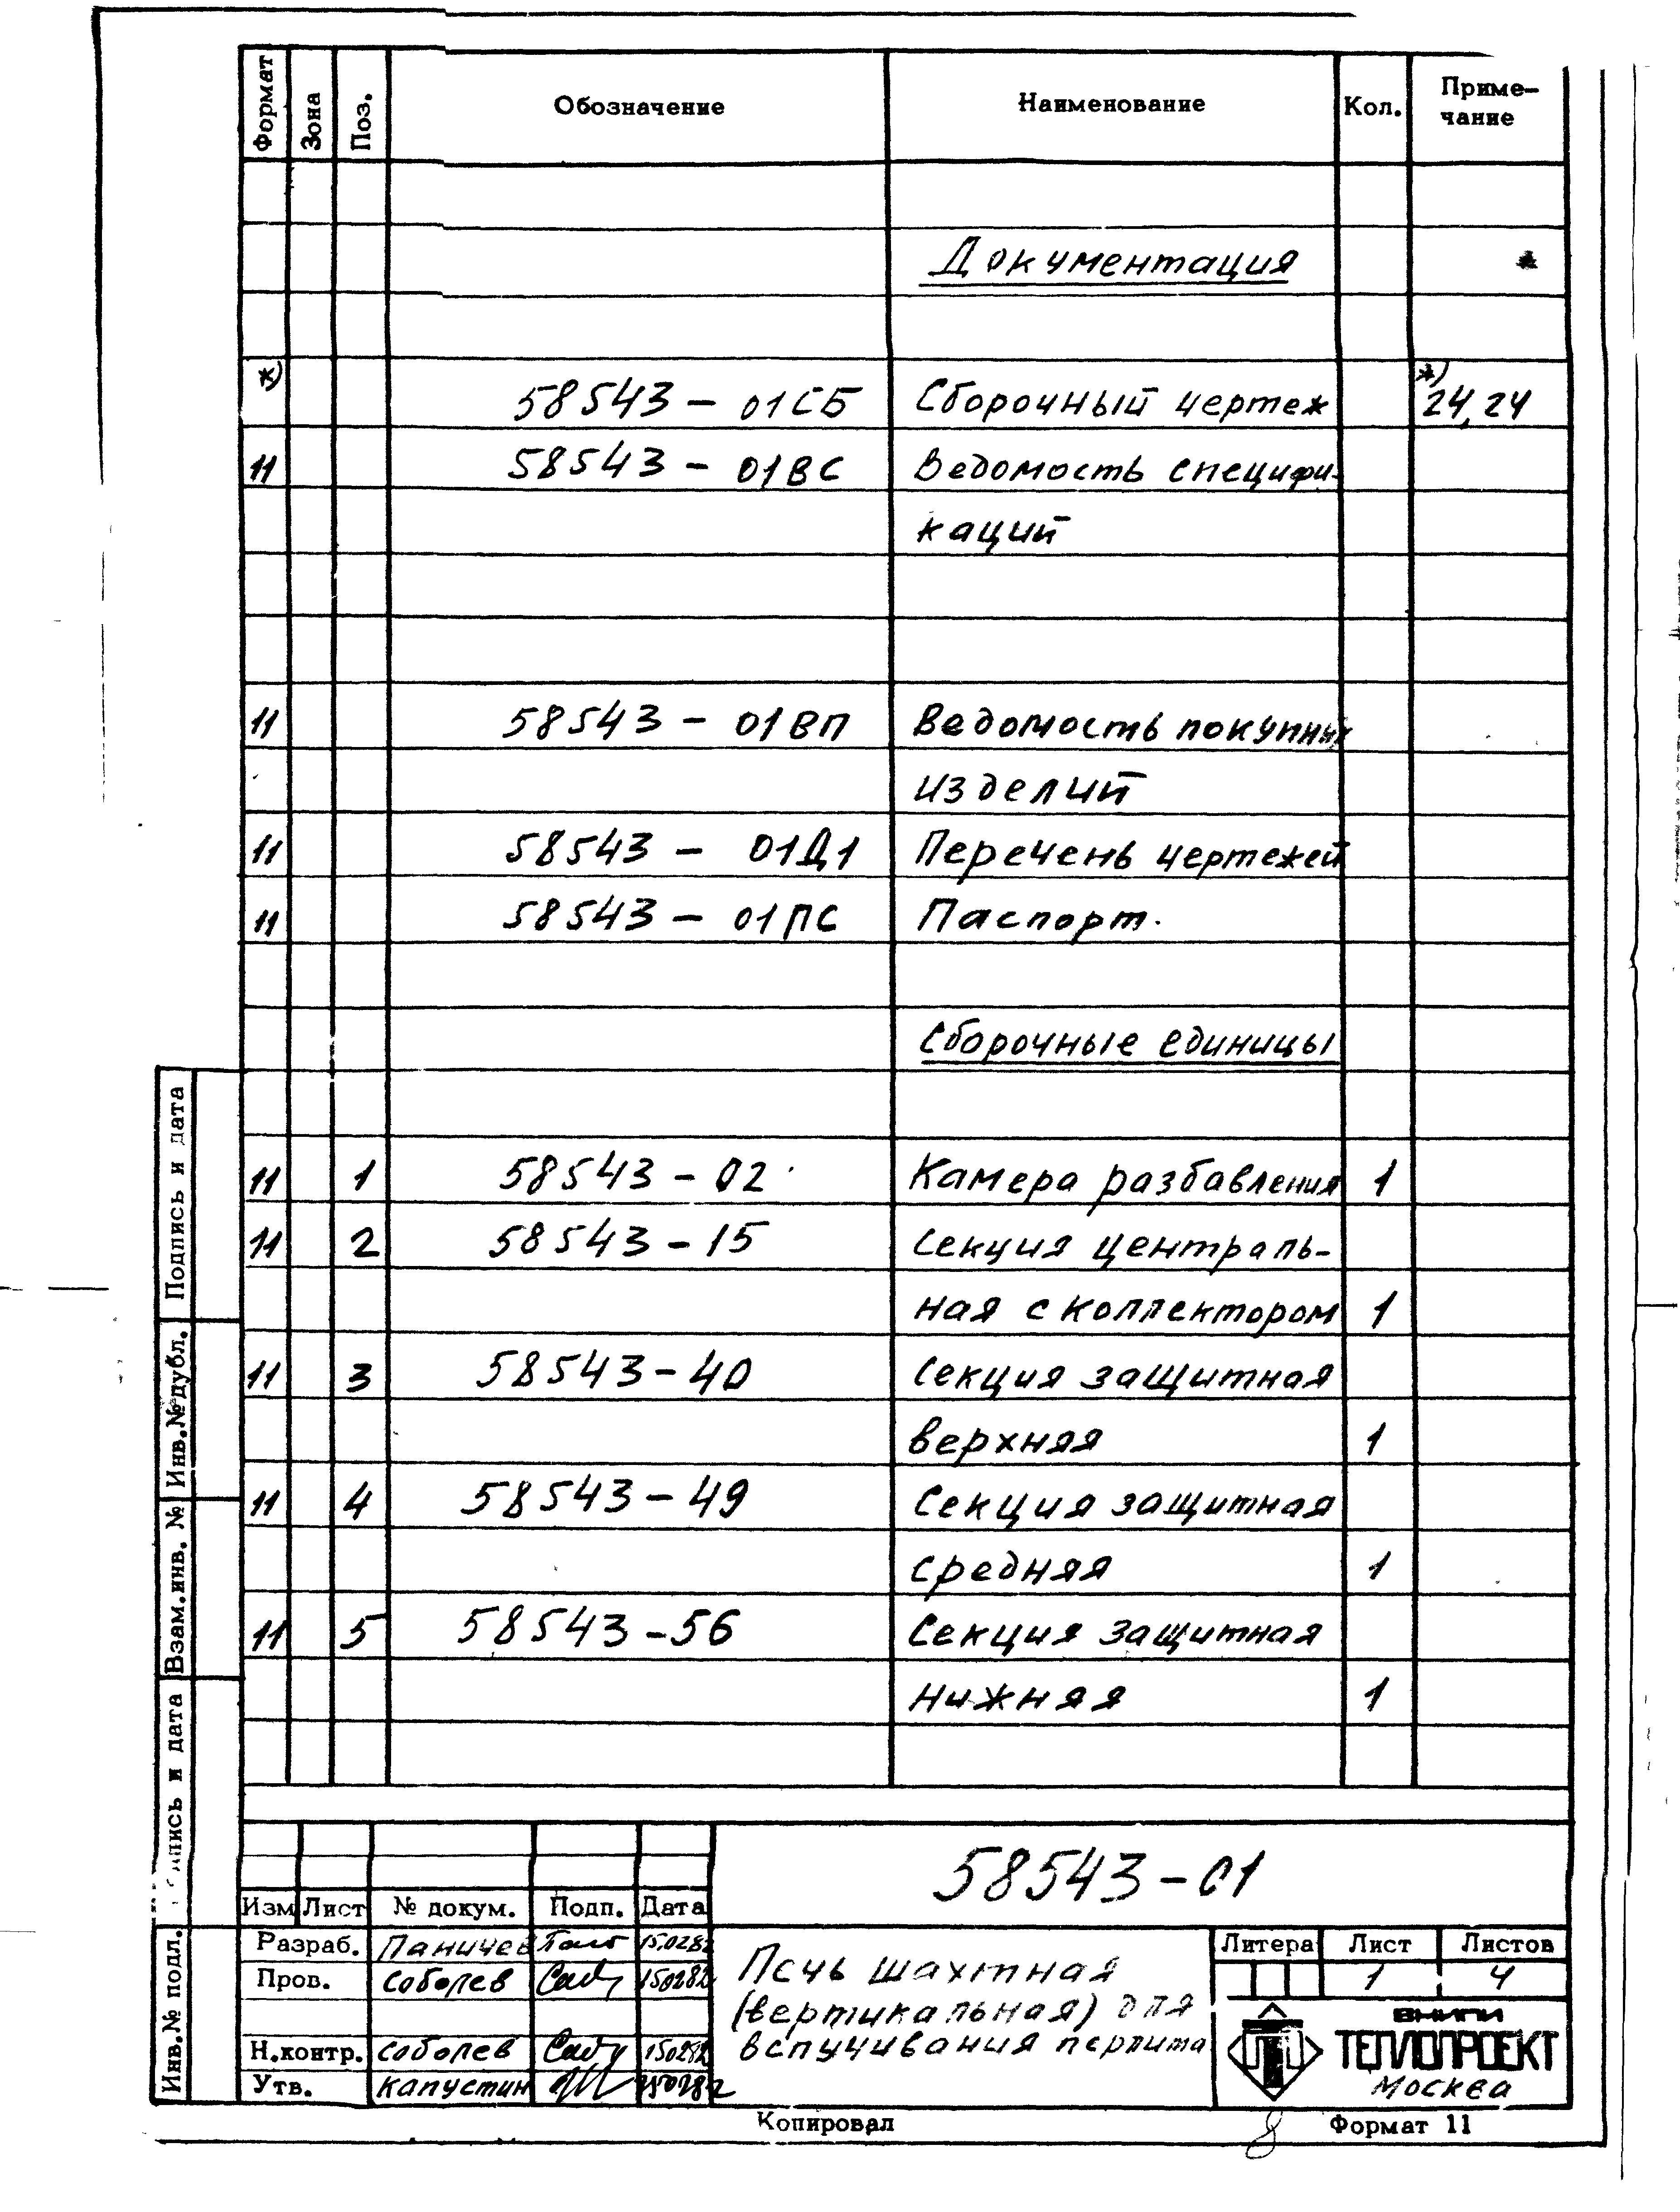 Формат Зона Поз. Обозначение Наименование Кол. Приме-
чание
Документация
*) 58543 - 01СБ Сборочный чертеж *) 24, 24
11 58543 - 01ВС Ведомость специфи-
каций
11 58543 - 01ВП Ведомость покупных
изделий
11 58543 - 01Д1 Перечень чертежей
11 58543 - 01ПС Паспорт.
Сборочные единицы
11 1 58543 - 02 Камера разбавления 1
11 2 58543 - 15 Секция централь-
ная с коллектором 1
11 3 58543 - 40 Секция защитная
верхняя 1
11 4 58543 - 49 Секция защитная
средняя 1
11 5 58543 - 56 Секция защитная
нижняя 1
Подпись и дата
Инв.№дубл.
Взам.инв. №
и дата
Инв.№ подл.
58543 - 01
Изм Лист № докум. Подп. Дата
Разраб. Паничев 150282
Пров. Соболев 150282
Н.контр. Соболев 150282
Утв. Капустин 150282
Печь шахтная
(вертикальная) для
вспучивания перлита
Литера Лист Листов
1 4
ВНИПИ
ТЕПЛОПРОЕКТ
Москва
Копировал
8
Формат 11